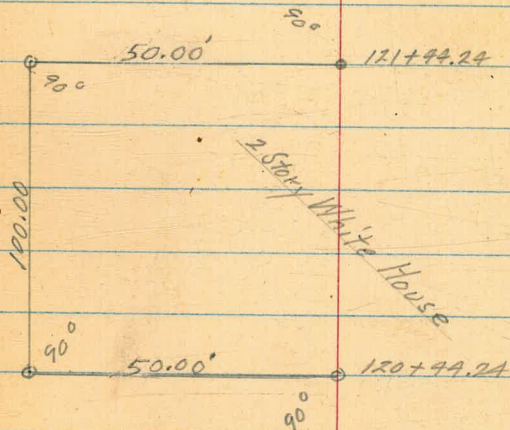 90°
50.00'
121+44.24
90°
2 Story White House
100.00
90°
50.00'
120+44.24
90°